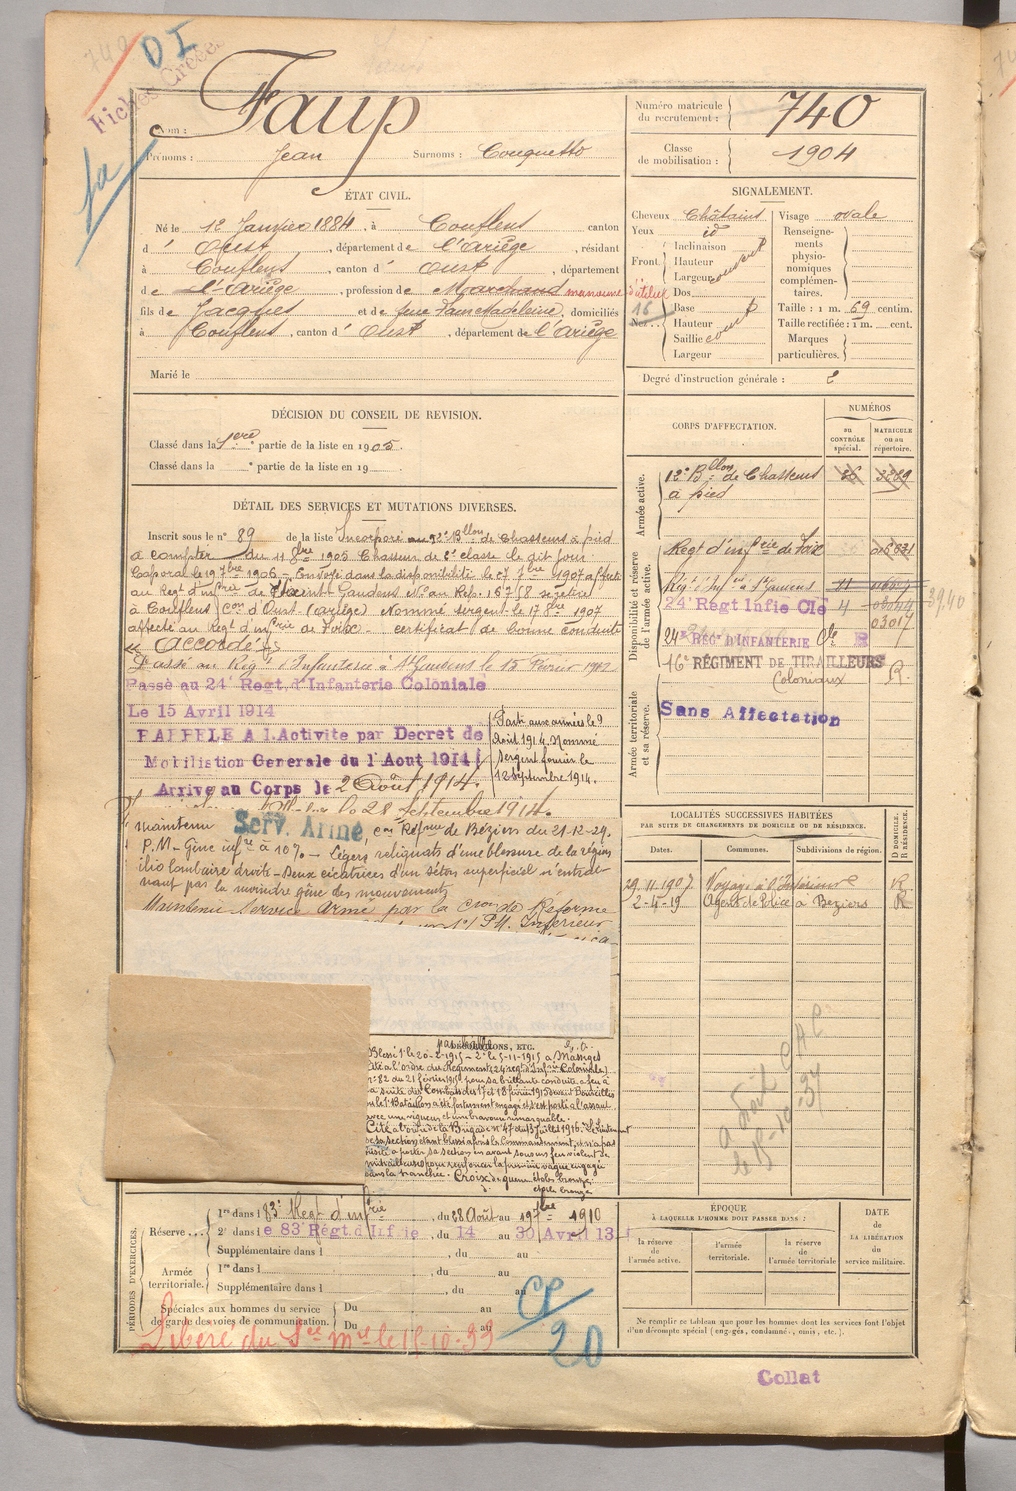 740
OI
Fiches Créées
fa
Nom : Faup
Prénoms : Jean Surnoms : Couquetto
Numéro matricule du recrutement : 740
Classe de mobilisation : 1904
ÉTAT CIVIL.
Né le 12 Janvier 1884, à Couflens canton
d' Oust, département de l'Ariège, résidant
à Couflens, canton d' Oust, département
de l'Ariège, profession de Marchand manœuvre d'atelier
fils de Jacques et de feue Faup Madeleine, domiciliés
à Couflens, canton d' Oust, département de l'Ariège
Marié le
SIGNALEMENT.
Cheveux Châtains
Yeux id
Front Inclinaison
Hauteur
Largeur couvert
Nez Dos
Base
Hauteur
Saillie court
Largeur
16
Visage ovale
Renseignements physionomiques complémentaires.
Taille : 1 m. 69 centim.
Taille rectifiée : 1 m. cent.
Marques particulières.
Degré d'instruction générale : 2
DÉCISION DU CONSEIL DE REVISION.
Classé dans la 1ère partie de la liste en 1905.
Classé dans la partie de la liste en 19
CORPS D'AFFECTATION.
NUMÉROS
au CONTRÔLE spécial.
MATRICULE ou au répertoire.
Armée active.
12e Bllon de Chasseurs à pied 3289
Disponibilité et réserve de l'armée active.
Régt d'infrie de Foix
Régt d'Infrie à St Gaudens 11
24 Régt Infie Cle 4
03017
24e REGt D'INFANTERIE Cle R
16e RÉGIMENT DE TIRAILLEURS
Coloniaux R.
Armée territoriale et sa réserve.
Sans Affectation
DÉTAIL DES SERVICES ET MUTATIONS DIVERSES.
Inscrit sous le n° 89 de la liste Incorporé au 12e Bllon de Chasseurs à pied
à compter du 11 8bre 1905 Chasseur de 2e classe le dit jour.
Caporal le 19 7bre 1906 - Envoyé dans la disponibilité le 27 7bre 1907 affecté
au Régt d'infrie de St Gaudens
à Couflens con d'Oust (Ariège) Nommé sergent le 17 8bre 1907
affecté au Régt d'infrie de Foix - certificat de bonne conduite
« Accordé »
Passé au Régt d'Infanterie à St Gaudens le 15 Février 1912
Passé au 24e Regt. d'Infanterie Coloniale
Le 15 Avril 1914
RAPPELE A l.Activite par Decret de
Mobilistion Generale du 1 Aout 1914
Arrive au Corps le 2 Août 1914.
Parti aux armées le 9
Août 1914. Nommé
sergent fourrier le
12 septembre 1914.
le 28 septembre 1914.
Maintenu Serv. Armé con Réfme de Béziers du 21-12-29.
P.M - Gêne infre à 10% - Légers reliquats d'une blessure de la région
ilio lombaire droite - Deux cicatrices d'un séton superficiel n'entraî-
nant pas la moindre gêne des mouvements
Maintenu Service Armé par la Con de Réforme
P.M. Inférieur
DÉCORATIONS, ETC.
Blessé 1° le 20-2-1915 - 2° le 5-11-1915 à Massiges
Cité à l'ordre du Régiment (24e régt d'Infrie Coloniale)
n° 82 du 21 février 1915 pour sa brillante conduite au feu à
la suite des Combats des 17 et 18 février 1915
où le 1er Bataillon a été fortement engagé et s'est porté à l'assaut
avec une vigueur et une bravoure remarquable.
Cité à l'ordre de la Brigade n° 47 du 13 Juillet 1916.
de sa section étant blessé a pris le Commandement, et n'a pas
hésité à porter sa section en avant sous un feu violent de
mitrailleuse pour renforcer la première vague engagée
dans la tranchée. Croix de guerre étoile bronze.
étoile bronze
LOCALITÉS SUCCESSIVES HABITÉES
PAR SUITE DE CHANGEMENTS DE DOMICILE OU DE RÉSIDENCE.
Dates. Communes. Subdivisions de région. D DOMICILE. R RÉSIDENCE.
29.11.1907 Voyage à l'Intérieur R
2-4-19 Agent de Police à Béziers R
a droit C A C
le 15-10-34
PÉRIODES D'EXERCICES.
Réserve... 1re dans l 83e Régt d'infrie, du 28 Août au 19 7bre 1910
2e dans l e 83 Régt.d'Inf ie, du 14 au 30 Avril 13
Supplémentaire dans l , du au
Armée territoriale. 1re dans l , du au
Supplémentaire dans l , du au
Spéciales aux hommes du service de garde des voies de communication. Du au
Du au
Libéré du Sce Mre le 15-10-33
CP
20
ÉPOQUE
À LAQUELLE L'HOMME DOIT PASSER DANS :
la réserve de l'armée active.
l'armée territoriale.
la réserve de l'armée territoriale
DATE de LA LIBÉRATION du service militaire.
Ne remplir ce tableau que pour les hommes dont les services font l'objet
d'un décompte spécial (engagés, condamnés, omis, etc.).
Collat